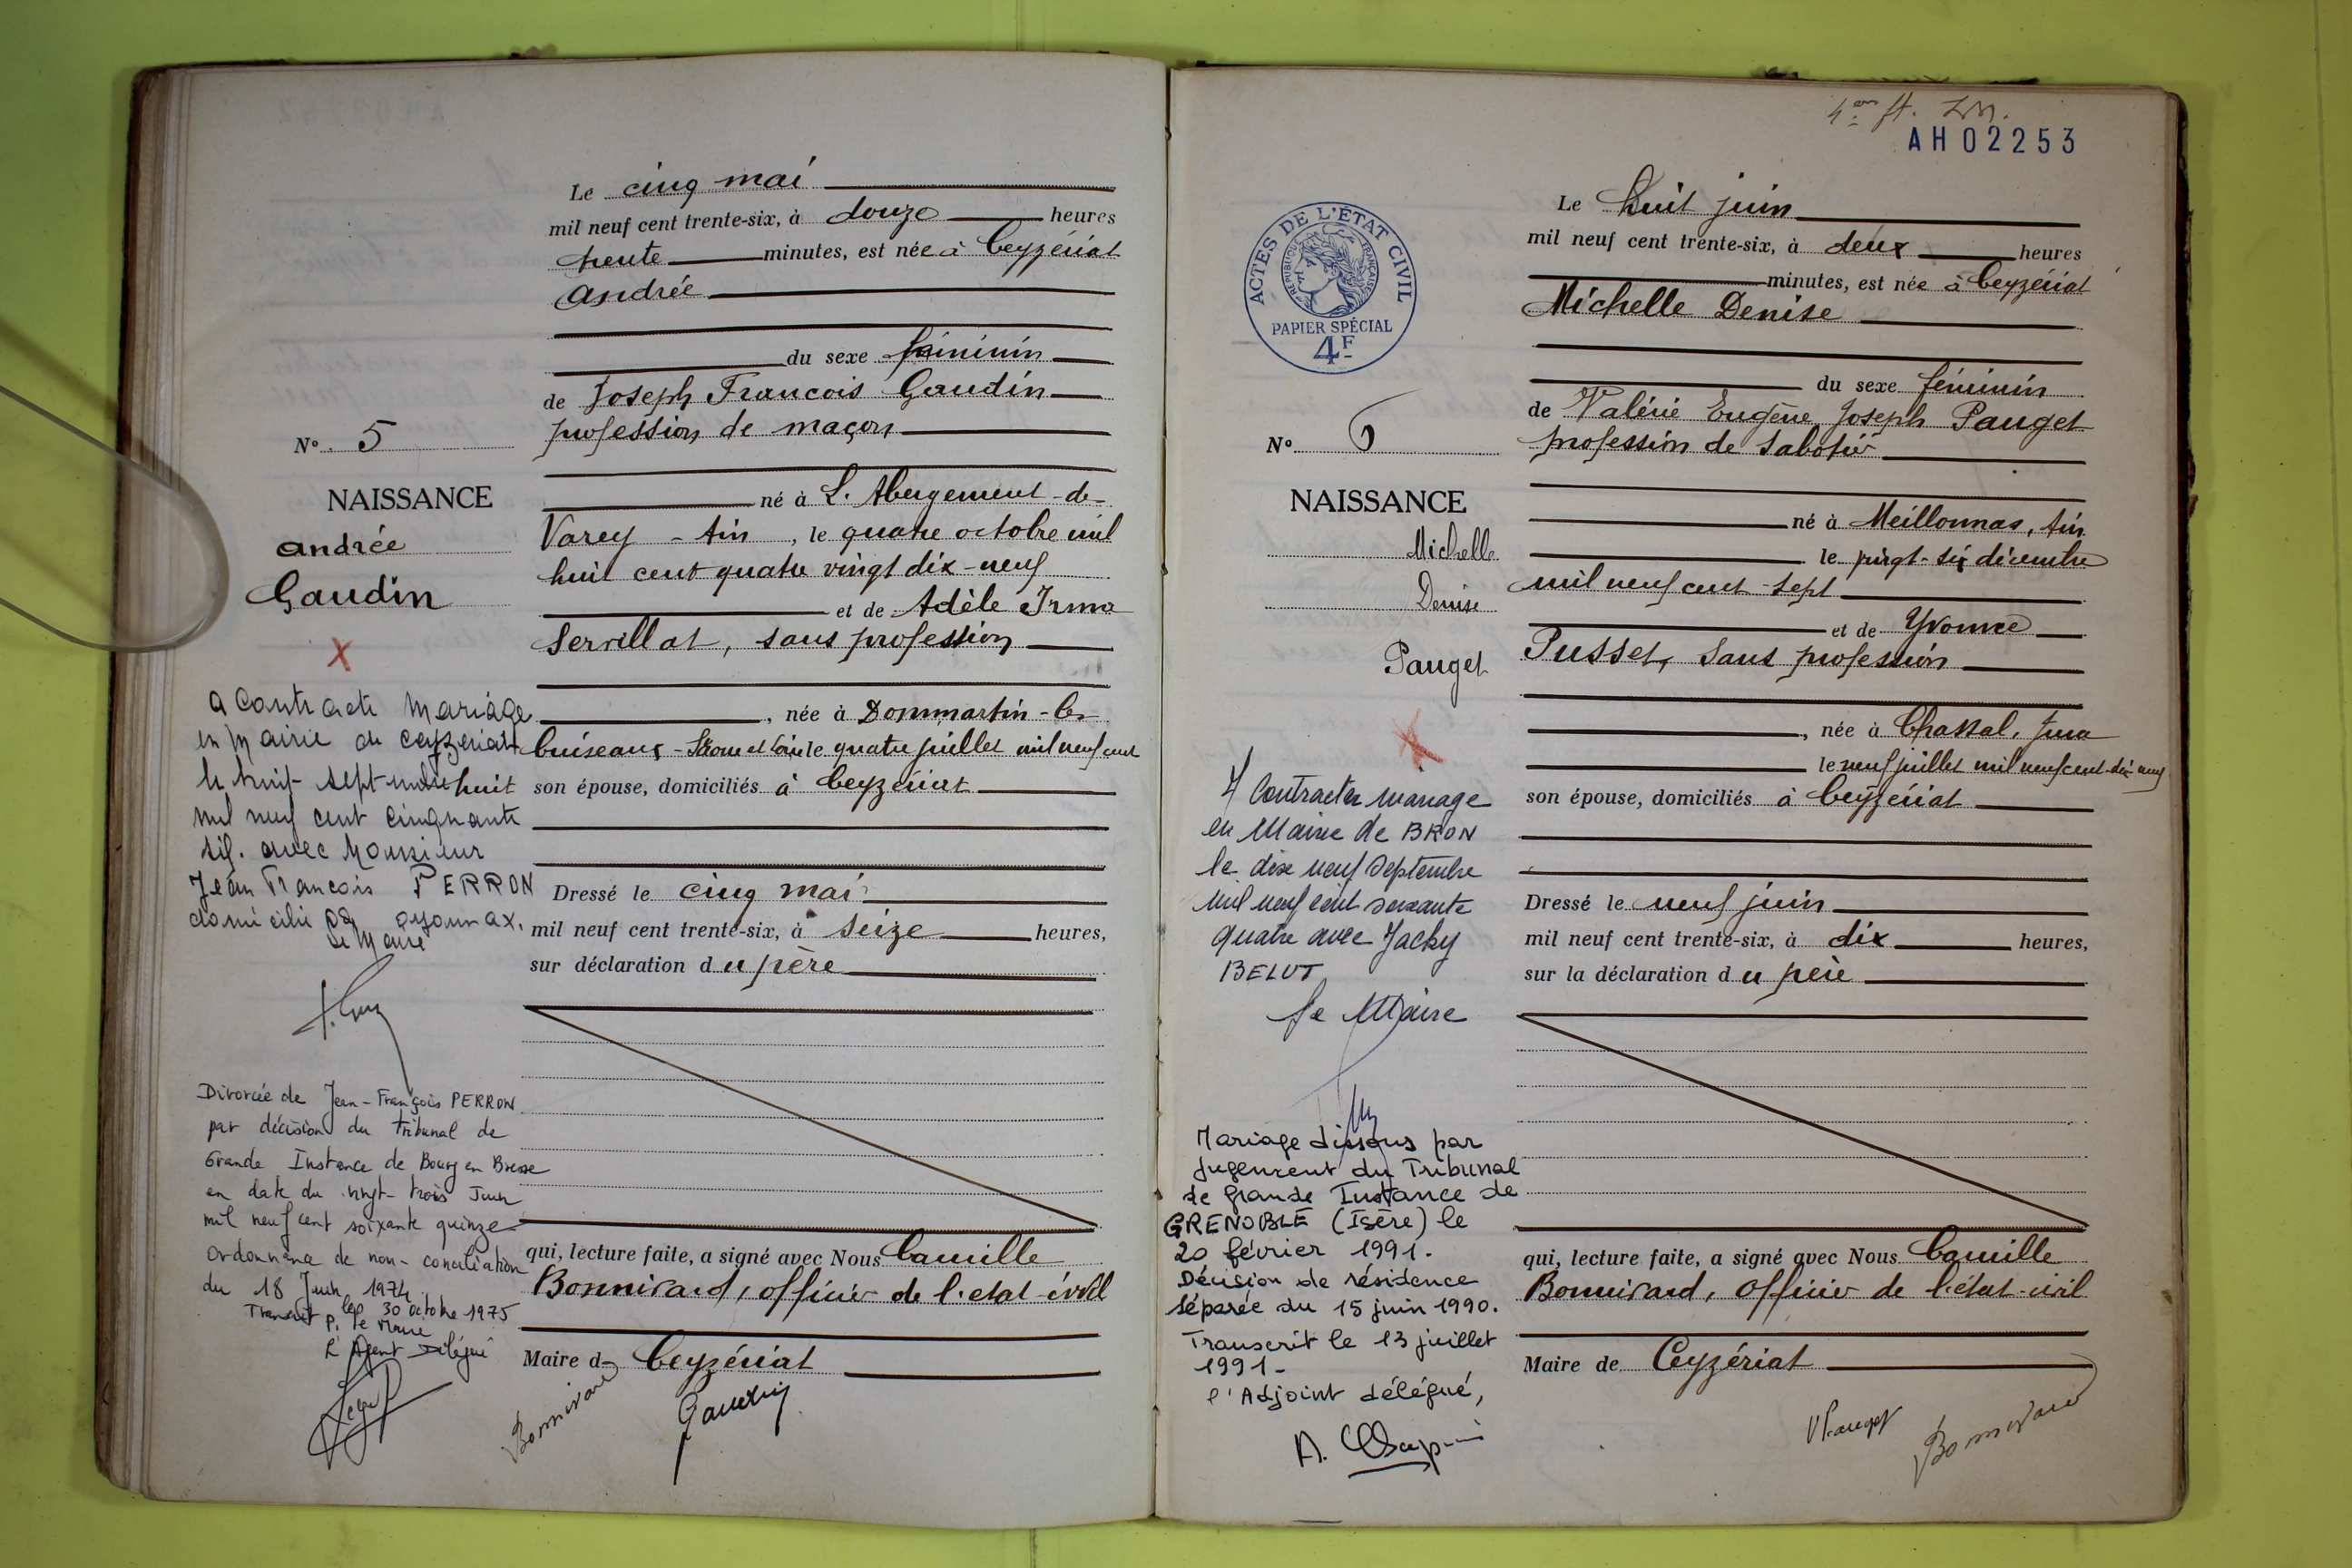 Le cinq mai
mil neuf cent trente-six, à douze heures
trente minutes, est née à Ceyzériat
Andrée
du sexe féminin
de Joseph François Gaudin
profession de maçon
né à L'Abergement-de-
Varey - Ain, le quatre octobre mil
huit cent quatre vingt dix-neuf
et de Adèle Irma
Servillat, sans profession
, née à Dommartin-les-
Cuiseaux - Saône et Loire le quatre juillet mil neuf cent
son épouse, domiciliés à Ceyzériat
Dressé le cinq mai
mil neuf cent trente-six, à seize heures,
sur déclaration du père
qui, lecture faite, a signé avec Nous Camille
Bonnivard, officier de l'état-civil
Maire de Ceyzériat
Bonnivard
Gaudin
No. 5
NAISSANCE
Andrée
Gaudin
X
a contracté mariage
en mairie de Ceyzériat
le huit septembre huit
mil neuf cent cinquante
six. avec Monsieur
Jean François PERRON
domicilié à Oyonnax.
Le Maire
Divorcée de Jean-François PERRON
par décision du tribunal de
Grande Instance de Bourg en Bresse
en date du vingt-trois Juin
mil neuf cent soixante quinze
ordonnance de non-conciliation
du 18 Juin 1974.
Transcrit le 30 octobre 1975
p. le Maire
L'Agent Délégué
AH02253
Le huit juin
mil neuf cent trente-six, à deux heures
minutes, est née à Ceyzériat
Michelle Denise
du sexe féminin
de Valérie Eugène Joseph Pauget
profession de sabotier
né à Meillonnas, Ain
le vingt-six décembre
mil neuf cent sept
et de Yvonne
Pusset, sans profession
, née à Chassal, Jura
le neuf juillet mil neuf cent dix neuf
son épouse, domiciliés à Ceyzériat
Dressé le neuf juin
mil neuf cent trente-six, à dix heures,
sur la déclaration du père
qui, lecture faite, a signé avec Nous Camille
Bonnivard, officier de l'état-civil
Maire de Ceyzériat
VPauget
Bonnivard
ACTES DE L'ÉTAT CIVIL
RÉPUBLIQUE FRANÇAISE
PAPIER SPÉCIAL
4F
No 6
NAISSANCE
Michelle
Denise
Pauget
X
A Contracter mariage
en Mairie de BRON
le dix neuf septembre
mil neuf cent soixante
quatre avec Jacky
BELUT
Le Maire
Mariage dissous par
jugement du Tribunal
de Grande Instance de
GRENOBLE (Isère) le
20 février 1991.
Décision de résidence
séparée du 15 juin 1990.
Transcrit le 13 juillet
1991-
l'Adjoint délégué,